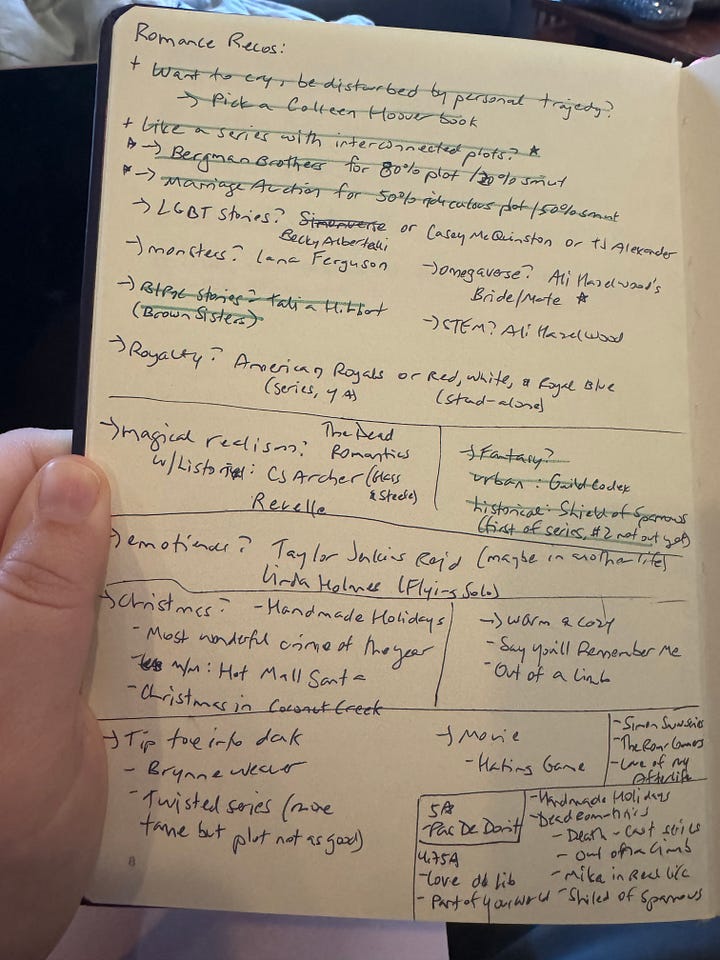 Romance Recos:
+ Want to cry, be disturbed by personal trajedy?
→ Pick a Colleen Hoover book
+ Like a series with interconnected plots? *
* → Bergman Brothers for 80% plot / 20% smut
* → Marriage Auction for 50% ridiculous plot / 50% smut
→ LGBT stories? Simonverse or Casey McQuinston or TJ Alexander
Becky Albertalli
→ monsters? Lana Ferguson
→ omegaverse? Ali Hazelwood's
Bride/Mate *
→ BIPOC stories? Talia Hibbert
(Brown Sisters)
→ STEM? Ali Hazelwood
→ Royalty? American Royals or Red, White, & Royal Blue
(series, YA) (stand-alone)
→ magical realism? The Dead
Romantics
w/ : CJ Archer (Glass
& Steele)
Revelle
→ Fantasy?
urban: Guild Codex
historical: Shield of Sparrows
(first of series, #2 not out yet)
→ emotions? Taylor Jenkins Reid (maybe in another life)
Linda Holmes (Flying Solo)
→ Christmas? - Handmade Holidays
- Most wonderful crime of the year
- m/m: Hot Mall Santa
- Christmas in Coconut Creek
→ warm & cozy
- Say you'll Remember Me
- Out of a limb
→ Tip toe into dark
- Brynne Weaver
- Twisted series (more
tame but plot not as good)
→ Movie
- Hating Game
- Simon Sunseries
- The Rom Comers
- Love of my
Afterlife
5A
- Pas De Don't
4.75A
- Love ob lib
- Part of your world
- Handmade Holidays
- Dead romantics
- Death - Cast series
- Out of a limb
- Mika in Real Life
- Shiled of Sparrows
8